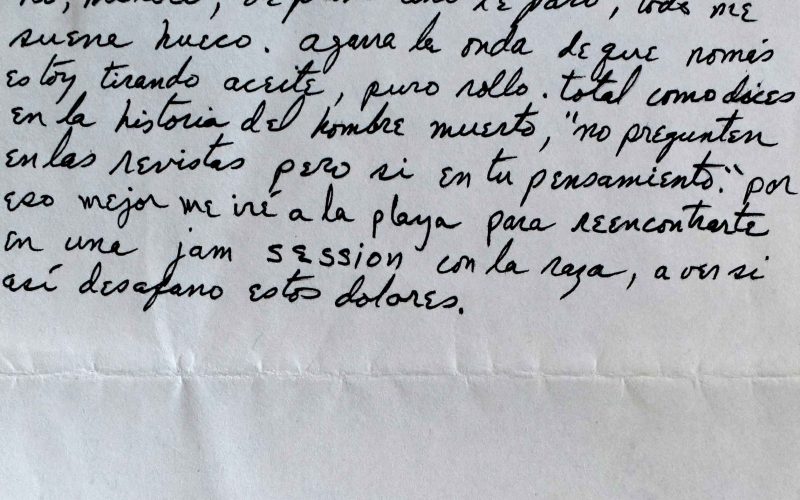 me
suena hueco. agarra la onda de que nomás
estoy tirando aceite, puro rollo. total como dices
en la historia del hombre muerto, "no pregunten
en las revistas pero si en tu pensamiento." por
eso mejor me iré a la playa para reencontrarte
en una jam session con la raza, a ver si
así desafano estos dolores.